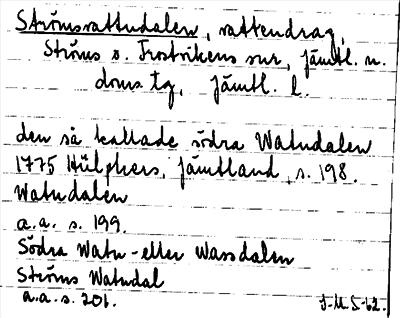 Strömsvattudalen, vattendrag,
Ströms o. Frostvikens snr, Jämtl. n.
doms tg, Jämtl. l.
den så kallade södra Watudalen
1775 Hülphers, Jämtland, s. 198.
Watudalen
a.a. s. 199.
Södra Watu- eller Wassdalen
Ströms Watudal
a.a. s. 201.
J.M.S-62.